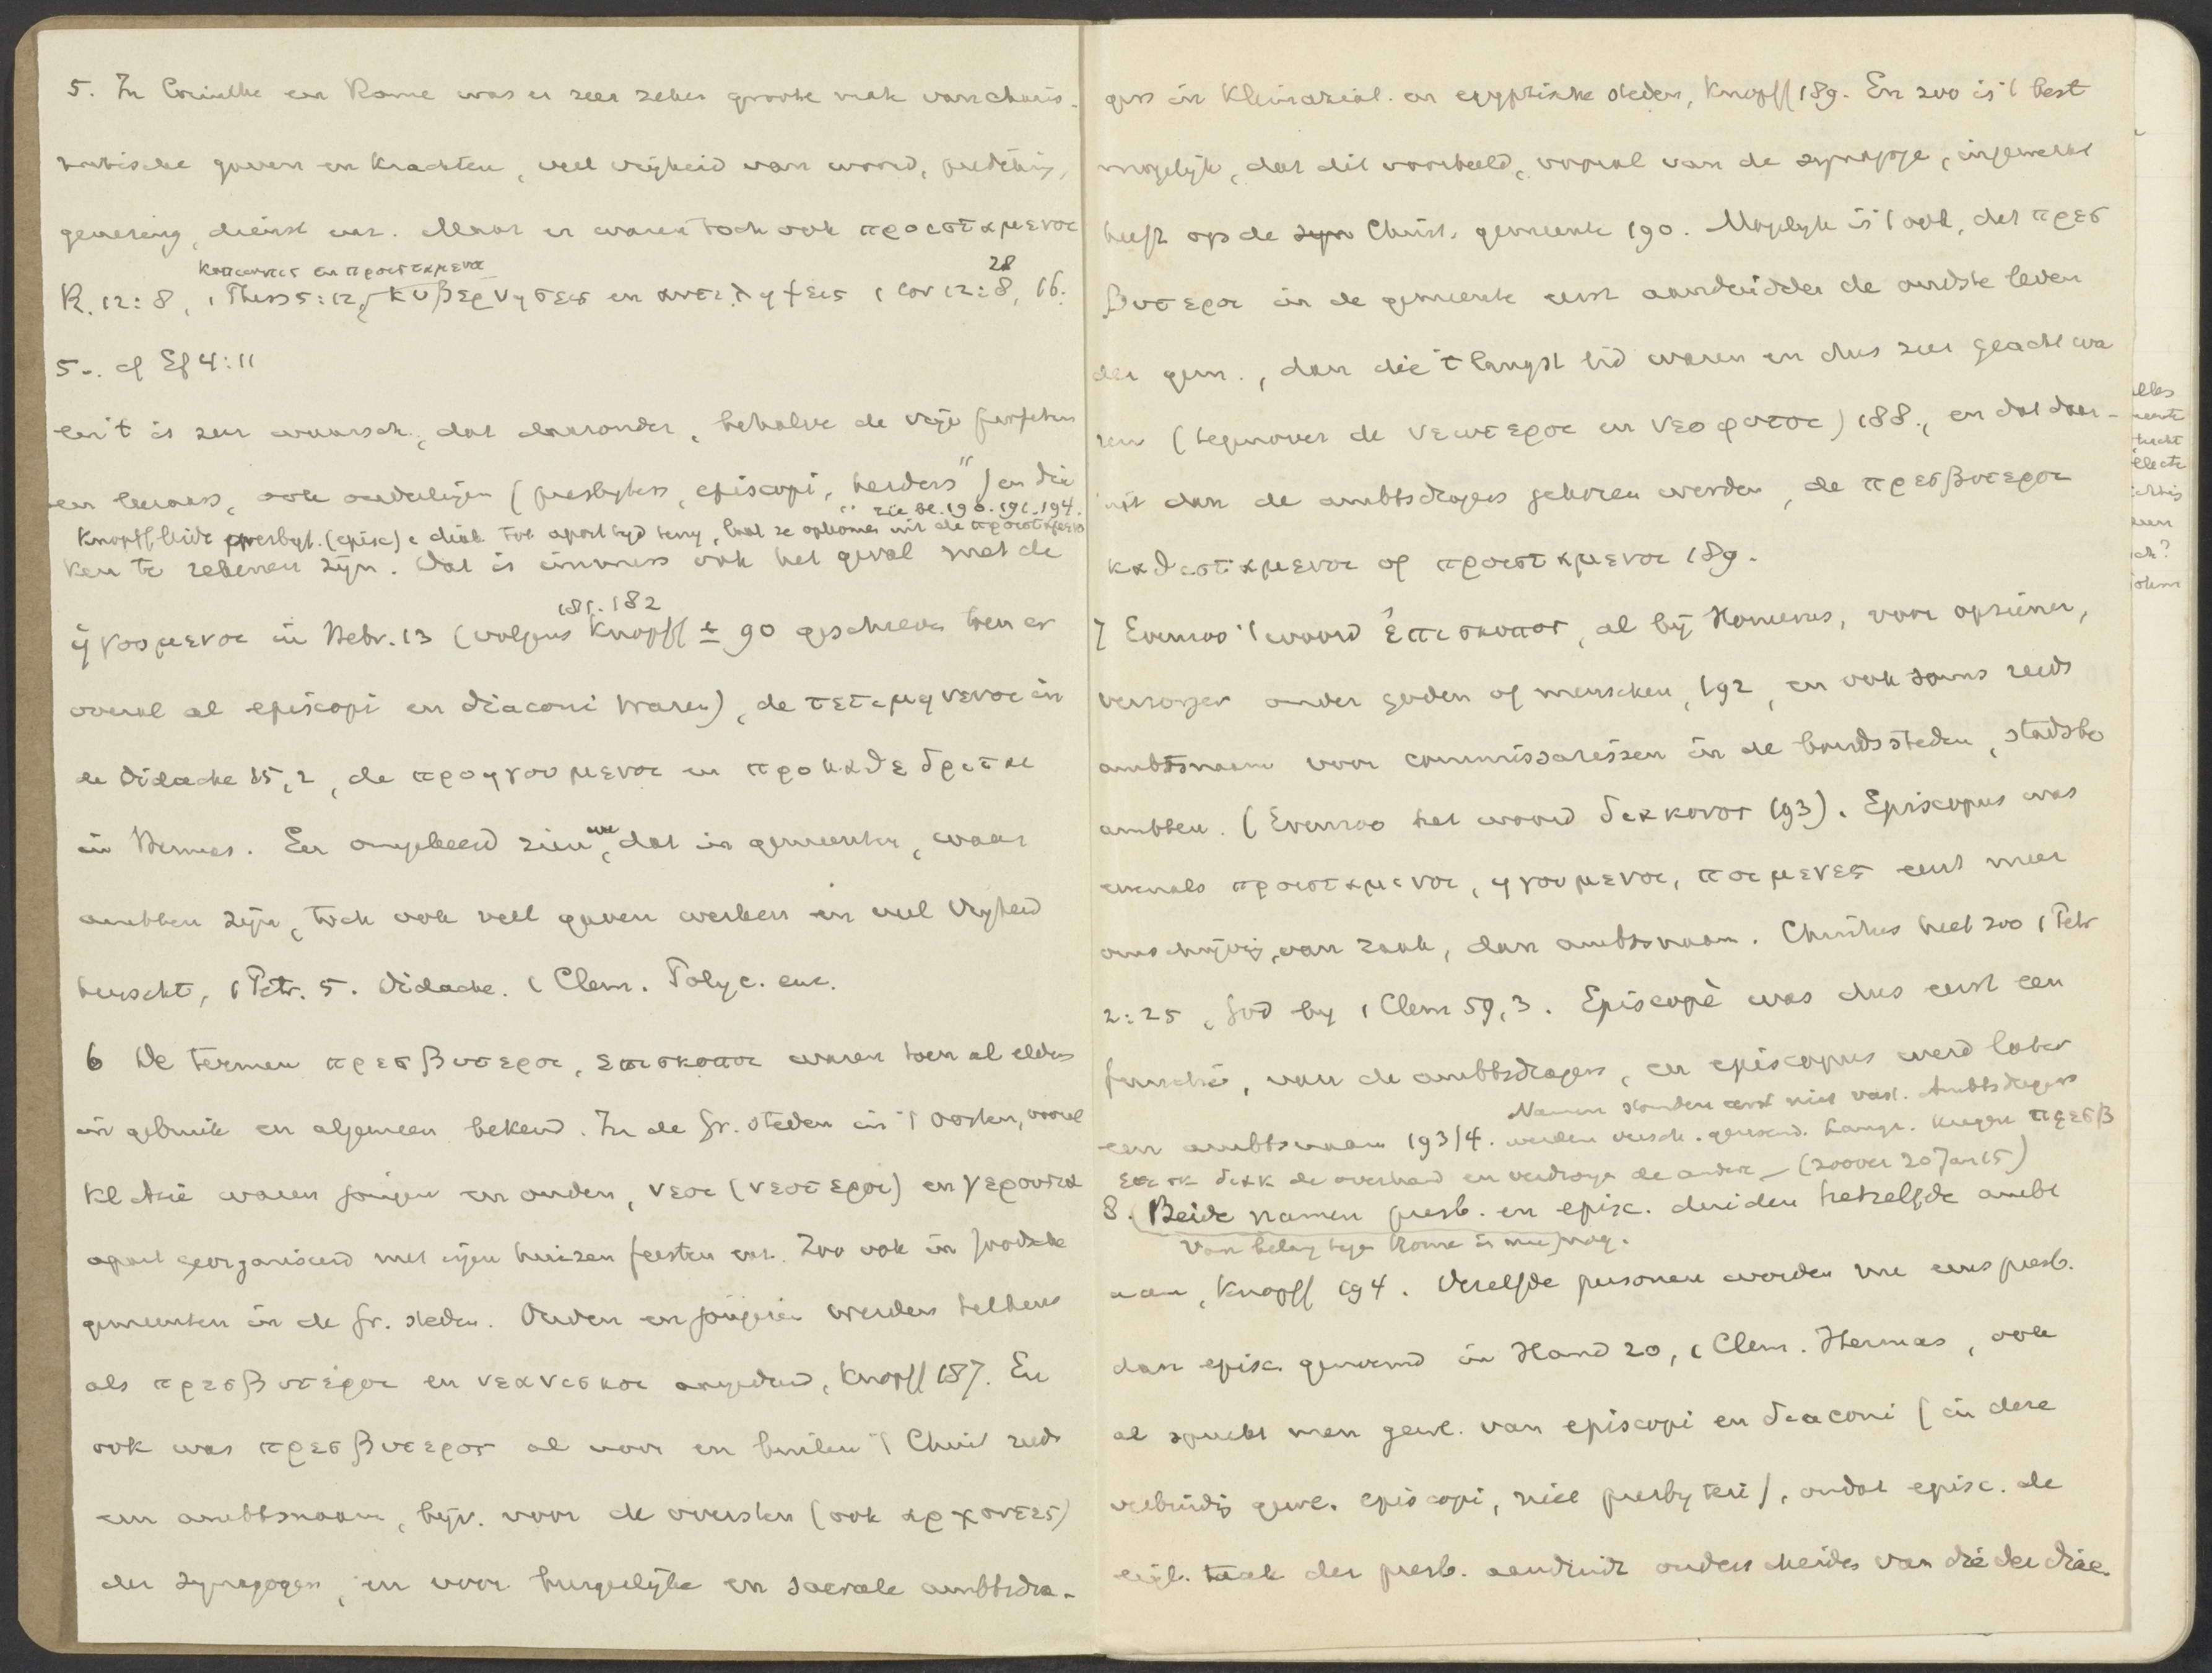 5. In Corinthe en Rome was er zeer zeker groote mate van charis-
matische gaven en krachten, veel vrijheid van woord, prediking,
genezing, dienst enz. Maar er waren toch ook προισταμενοι
κοπιωντες en προισταμενοι 28
R. 12:8, 1 Thess 5:12, κυβερνησεις en αντιληψεις 1 Cor 12:8, 16.
5.. cf Ef 4:11
en 't is zeer waarsch., dat daaronder, behalve de vrije profeten
en leeraars, ook ouderlingen (presbyters, episcopi, "herders") en dia
zie bl. 190. 191. 194.
Knopff leidt presbyt. (episc) e diak tot apost tijd terug, laat ze opkomen uit de προισταμενοι
ken te rekenen zijn. Dat is immers ook het geval met de
181. 182
ηγουμενοι in Hebr. 13 (volgens Knopff ± 90 geschreven toen er
overal al episcopi en diaconi waren), de τετιμημενοι in
de Didache 15,2, de προηγουμενοι en προκαθεδριται
in Hermas. En omgekeerd zien we, dat in gemeenten, waar
ambten zijn, toch ook veel gaven werken en veel vrijheid
heerscht, 1 Petr. 5. Didache. 1 Clem. Polyc. enz.
6 De termen πρεσβυτεροι, επισκοποι waren toen al elders
in gebruik en algemeen bekend. In de Gr. steden in 't Oosten, vooral
Kl Azië waren jongen en ouden, νεοι (νεοτεροι) en γερουσια
apart georganiseerd met eigen huizen feesten enz. Zoo ook in Joodsche
gemeenten in de Gr. steden. Ouden en jongeren werden telkens
als πρεσβυτεροι en νεανισκοι aangeduid, Knopff 187. En
ook was πρεσβυτερος al voor en buiten 't Chrid reeds
een ambtsnaam, bijv. voor de oversten (ook αρχοντες)
der synagogen, en voor burgerlijke en sacrale ambtsdra-
gers in Kleinaziat. en egyptische steden, Knopff 189. En zoo is 't best
mogelijk, dat dit voorbeeld, vooral van de synagoge, ingewerkt
heeft op de syn Christ. gemeente 190. Mogelijk is 't ook, dat πρεσ
βυτεροι in de gemeente eerst aanduidden de oudste leden
der gem., dan die 't langst lid waren en dus zeer geacht wa
ren (tegenover de νεωτεροι en νεοφυτοι) 188., en dat daar-
uit dan de ambtsdragers gekozen werden, de πρεσβυτεροι
καθισταμενοι of προισταμενοι 189.
7 Evenzoo 't woord ἐπισκοπος, al bij Homerus, voor opziener,
verzorger onder goden of menschen, 192, en ook soms reeds
ambtsnaam voor commissarissen in de bondssteden, stadsbe
ambten. (Evenzoo het woord διακονος 193). Episcopus was
evenals προισταμενοι, ηγουμενοι, ποιμενες eerst meer
omschrijving van zaak, dan ambtsnaam. Christus heet zoo 1 Petr
2:25, God by 1 Clem 59,3. Episcopè was dus eerst een
functie, van de ambtsdragers, en episcopus werd later
Namen stonden eerst niet vast. Ambtsdragers
een ambtsnaam 193/4. werden versch. genoemd. Langz. kregen πρεσβ
επισκ διακ de overhand en verdrongen de andere — (zoover 20 Jan 15)
8. Beide namen presb. en episc. duiden hetzelfde ambt
Van belang tegen Rome is nu vraag.
aan, Knopff 194. Dezelfde personen worden nu eens presb.
dan episc. genoemd in Hand 20, 1 Clem. Hermas, ook
al spreekt men gew. van episcopi en diaconi (in deze
verbinding gew. episcopi, niet presbyteri), omdat episc. de
eigl. taak der presb. aanduidt onderscheiden van die der diac.